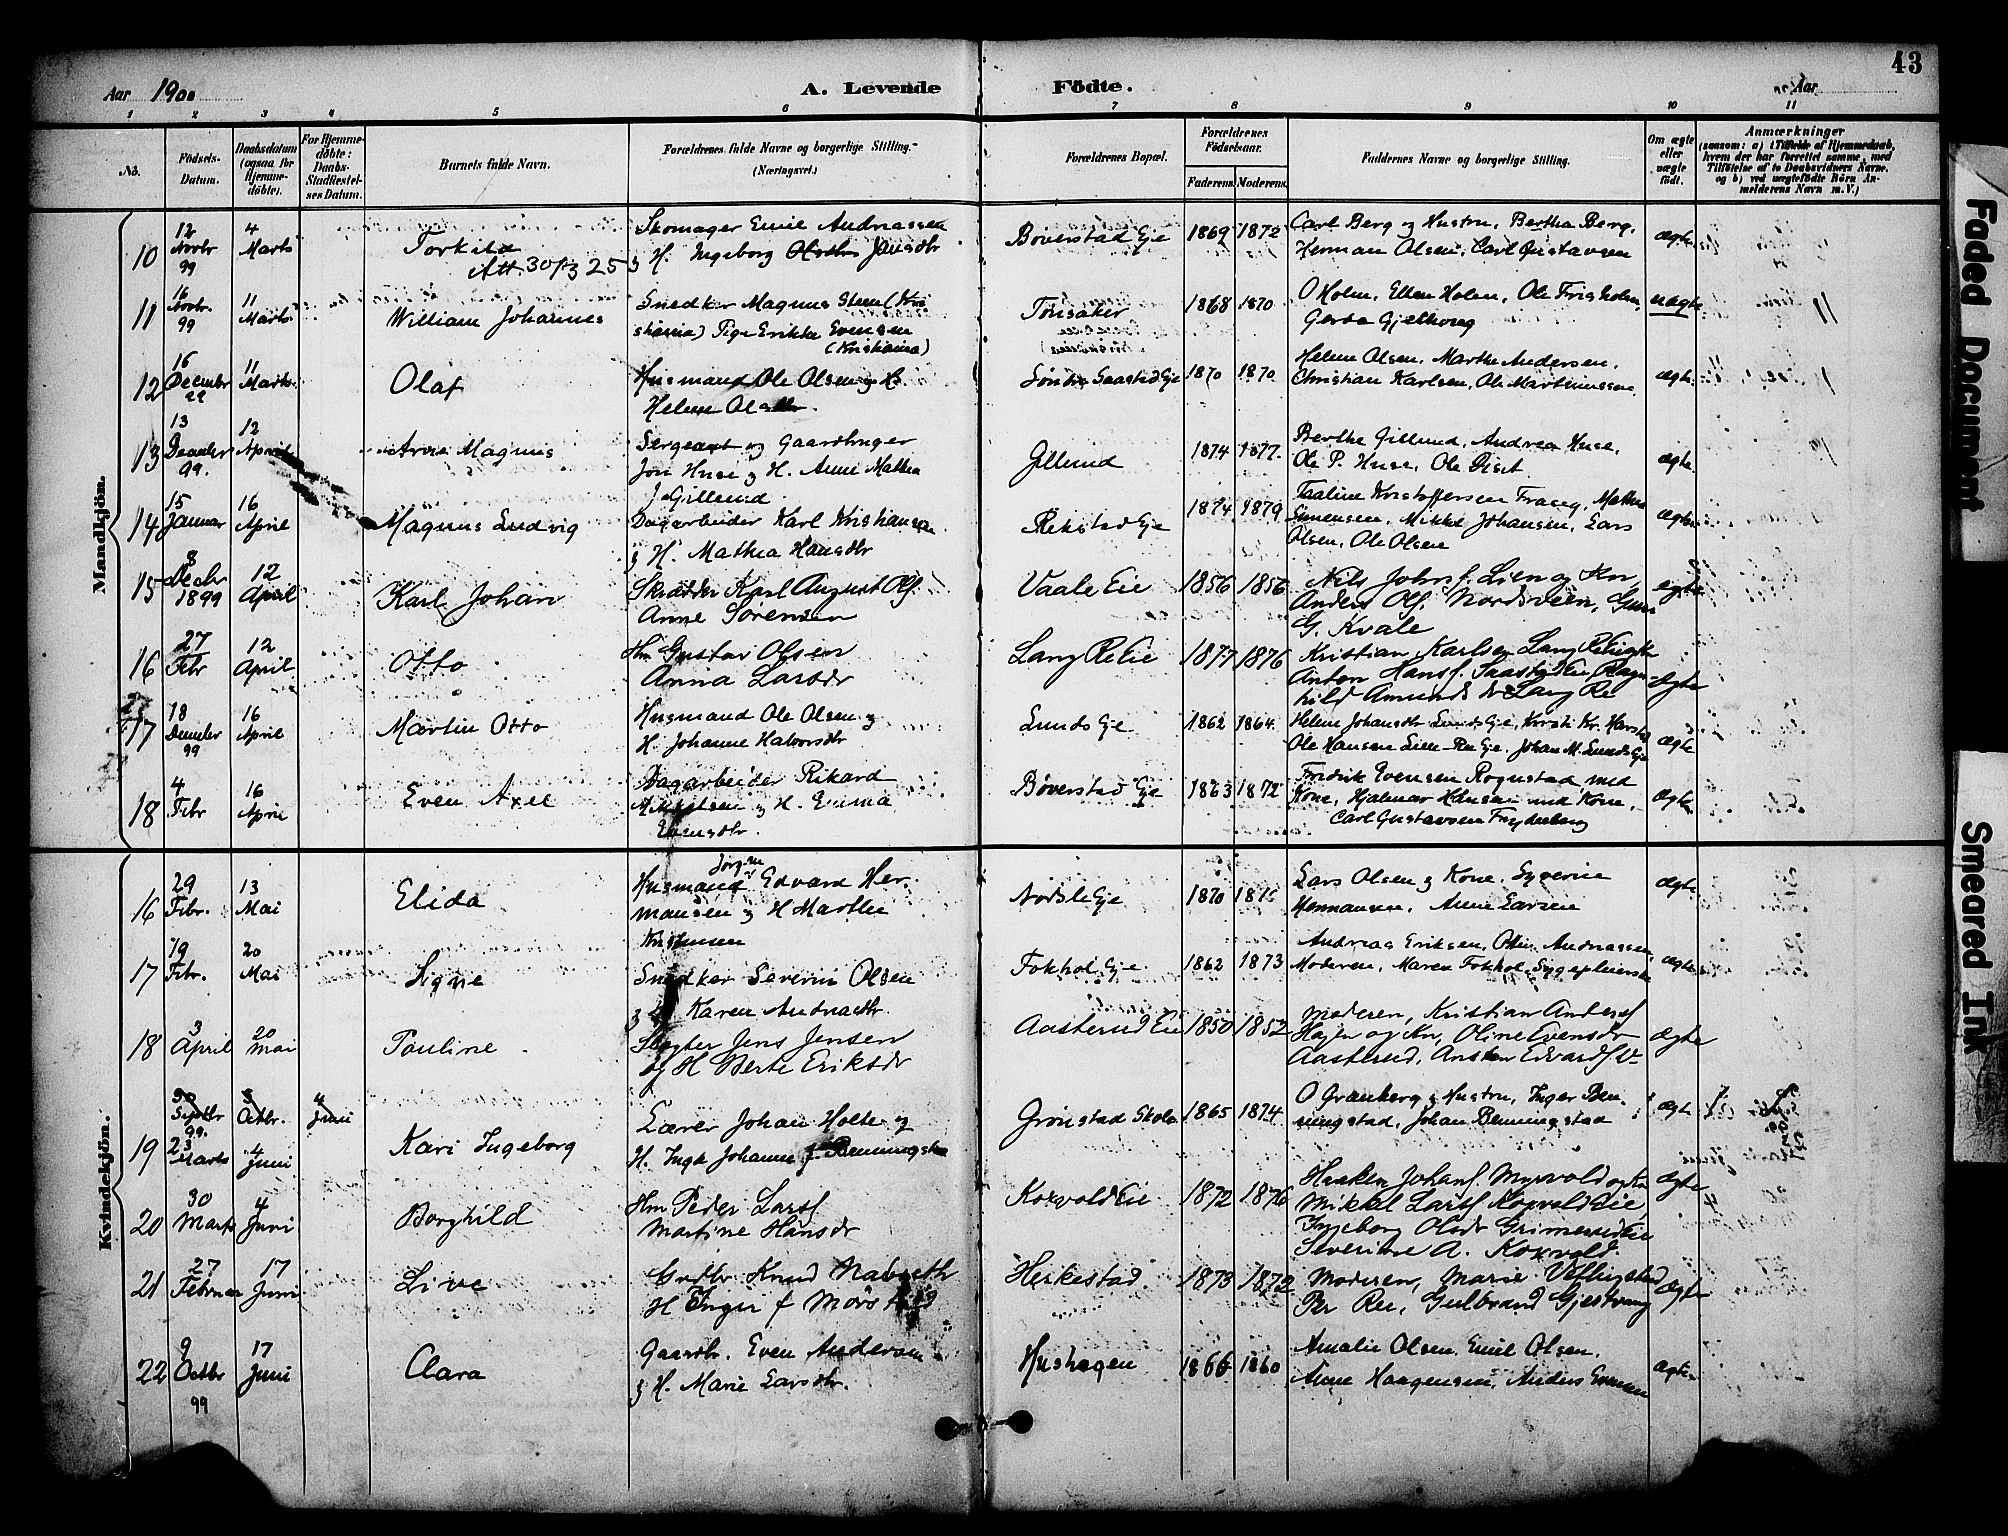 43
Aar 1900
A. Levende Födte.
Aar
1 2 3 4 5 6 7 8 9 10 11
No.
Födsels-Datum.
Daabsdatum (ogsaa for Hjemmedöbte).
For Hjemmedöbte: Daabs-Stadfæstelses Datum.
Barnets fulde Navn.
Forældrenes fulde Navne og borgerlige Stilling. (Næringsvei.)
Forældrenes Bopæl.
Forældrenes Födselsaar.
Faderens. Moderens.
Faddernes Navne og borgerlige Stilling.
Om ægte eller uægte födt.
Anmærkninger
(saasom: a) i Tilfælde af Hjemmedaab, hvem der har forrettet samme, med Tilföielse af to Daabsvidners Navne, og b) ved uægtefödte Börn Anmelderens Navn m. V.)
Mandkjön.
10 12 Novbr 99 4 Marts Torkild Att. 30/3 25
Skomager Emil Andreassen
& H. Ingeborg Jansdtr
Böverstad Eje 1869 1872
Carl Berg og Hustru, Bertha Berg,
Herman Olsen, Carl Gustavsen
ægte
11 16 Novbr. 99 11 Marts William Johannes
Snedker Magnus Steen (Kri
stiania) Pige Erikka Evensen
(Kristiania)
Tönsaker 1868 1870
O Holm, Ellen Holm, Ole Frisholm,
Gerda Gjelhoug
uægte
12 16 Decembr 99 11 Marts Olaf
Husmand Ole Olsen og H.
Helene Olsdtr.
Söndre Saastad Eje 1870 1870
Helene Olsen, Marthe Andersen,
Christian Karlsen, Ole Marthinussen
ægte
13 13 December 99. 12 April Arne Magnus
Sergeant og Gaardbruger
Jon Huse & H. Anne Mathea
Gillund
Gillund 1874 1877
Berthe Gillund, Andrea Huse,
Ole P. Huse, Ole
ægte
14 15 Januar 16 April Magnus Ludvig
Dagarbeider Karl Kristiansen
& H. Mathea Hansdtr
Rekstad Eje 1874 1879
Kristoffersen Mathea
Simensen, Mikkel Johansen, Lars
Olsen, Ole Olsen
ægte
15 8 Decbr 1899 12 April Karl Johan
Skrædder Karl August Ols.
Anne Sörensen
Vaale Eie 1856 1856
Nils Johns. Lien og Kn,
Anders Ols. Nordsveen,
G. Kvale
ægte
16 27 Febr 12 April Otto
Hm Gustav Olsen
Anna Larsdr
Lang Re Eie 1877 1876
Kristian Karlsen Lang Re
Anton Hans. Saastad Eie, Ragn-
hild Amunds dr Lang Re
ægte
17 18 December 99 16 April Martin Otto
Husmand Ole Olsen &
H. Johanne Halvorsdtr
Lunds Eje 1862 1864
Helene Johansdtr Lunds Eje, Kirsti Kr. Harstad
Ole Hansen Lien Ree Eje, Johan M. Lunds Eje
ægte
18 4 Febr 16 April Even Axel
Dagarbeider Rikard
Mikkelsen & H. Emma
Evensdtr.
Böverstad Eje 1863 1872
Fredrik Evensen Rognstad med
Kone, Hjalmar Hansen med Kone,
Carl Gustavsen Frydenberg
ægte
Kvindekjön.
16 29 Febr. 13 Mai Elida
Jörgen
Husmand Edvard Her-
mansen & H Marthe
Kristensen
Aurdsle Eje 1870
Lars Olsen & Kone, Syverine
Hermansen, Anne Larsen
ægte
17 19 Febr. 20 Mai Signe
Snedker Severin Olsen
& H. Karen Andreasdtr.
Fokhol Eje 1862 1873
Andreas Eriksen, Otto Andreassen
Moderen, Maren Fokhol Sygepleierske
ægte
18 3 April 20 Mai Pauline
Slagter Jens Jensen
og H Berte Eriksdr
Aasterud Eie 1850 1852
Moderen, Kristian Anders.
Hagen og Kn, Oline Evensdr
Aasterud, Edvards.
ægte
19 30 Septbr 99. 8 Octbr. 4 Juni
23 Marts 4 Juni Kari Ingeborg
Lærer Johan Holte og
H. Inga Johanne f. Benningstad
Grönstad Skole 1865 1874
O Granberg & Hustru, Inger Ben-
ningstad, Johan Benningstad
ægte
20 30 Marts 4 Juni Borghild
Hm Peder Lars.
Martine Hansdr
Koxvold Eie 1872 1876
Haaken Johans. Myrvold og Kn
Mikkel Lars. Koxvold Eie
Ingeborg Olsdr Grimerud Eie
Severine A. Koxvold.
ægte
21 27 Februar 17 Juni Live
Grdbr Knud Nabseth
H Inger f Mörstad
Herkestad 1873 1872
Moderen, Marie
Per Ree, Gulbrand Gjestvang
ægte
22 9 Octbr 99 17 Juni Clara
Gaardbr. Even Andersen
& H. Marie Larsdtr.
Hushagen 1866 1860
Amalie Olsen, Emil Olsen,
Anne Haagensen, Anders Evensen
ægte
Faded Document
Smeared Ink